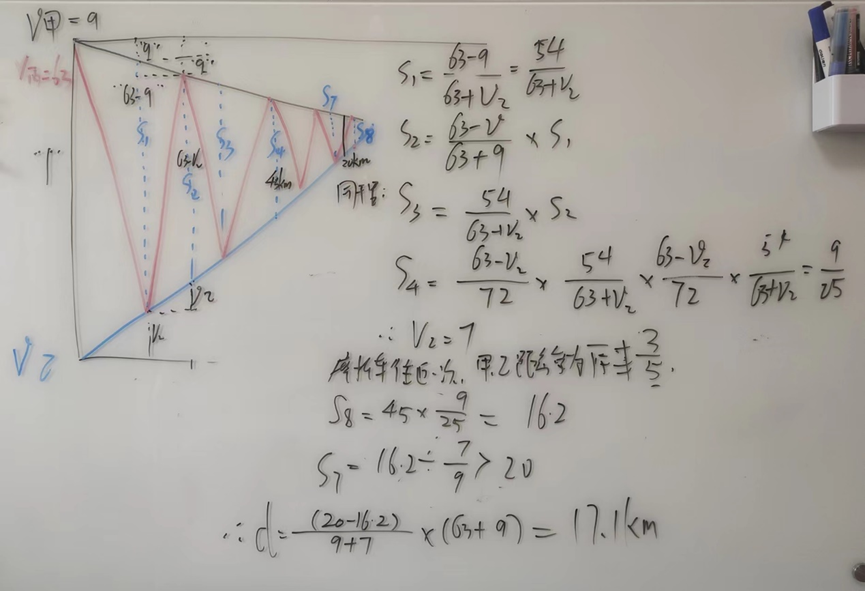 V甲=9
9
9
63-9
S₁
63-V₂
S₂
S₃
S₄
45km
S₇
S₈
20km
V₂
V乙
V乙
1
S₁ = (63-9)/(63+V₂) = 54/(63+V₂)
S₂ = (63-V)/(63+9) × S₁
同理: S₃ = 54/(63+V₂) × S₂
S₄ = (63-V₂)/72 × 54/(63+V₂) × (63-V₂)/72 × 54/(63+V₂) = 9/25
∴ V₂=7
摩托车往返一次, 甲乙距离为 3/5.
S₈ = 45 × 9/25 = 16.2
S₇ = 16.2 ÷ 7/9 > 20
∴ d = (20-16.2)/(9+7) × (63+9) = 17.1km